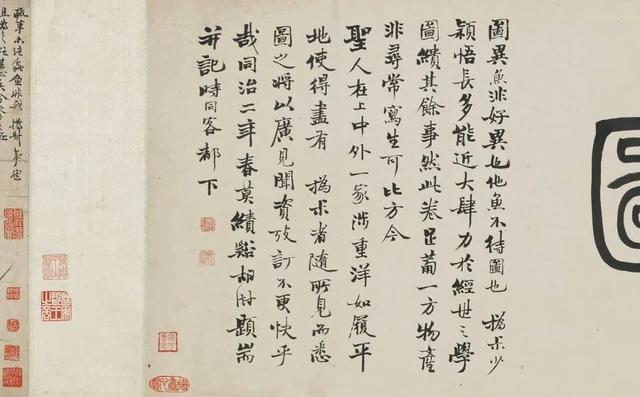 圖異魚非好異也他魚不待圖也 撝尗少
穎悟長多能近大肆力於經世之學
圖繢其餘事然此卷足葡一方物產
非尋常寫生可比方今
聖人在上中外一家涉重洋如履平
地使得盡有 撝尗者隨所見而悉
圖之將以廣見聞資攷訂不更快乎
哉同治二年春莫績谿胡澍題耑
并記時同客都下
疏草木注蟲魚非我撝尗事